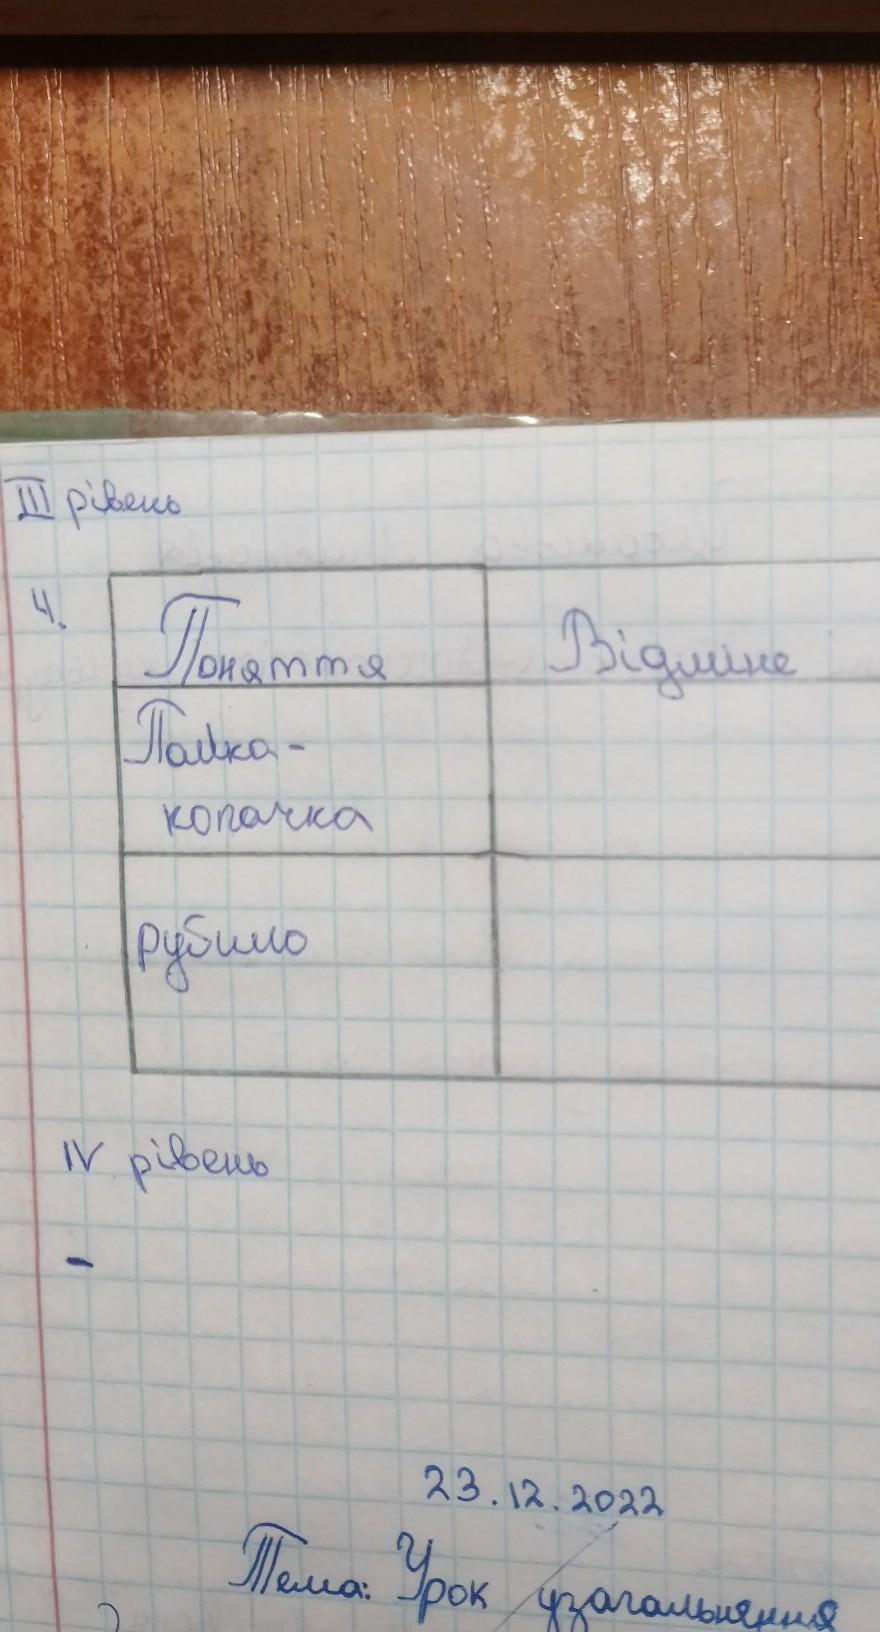 III рівень
4.
Поняття Відмінне
Палка-
копачка
рубило
IV рівень
-
23.12.2022
Тема: Урок узагальнення